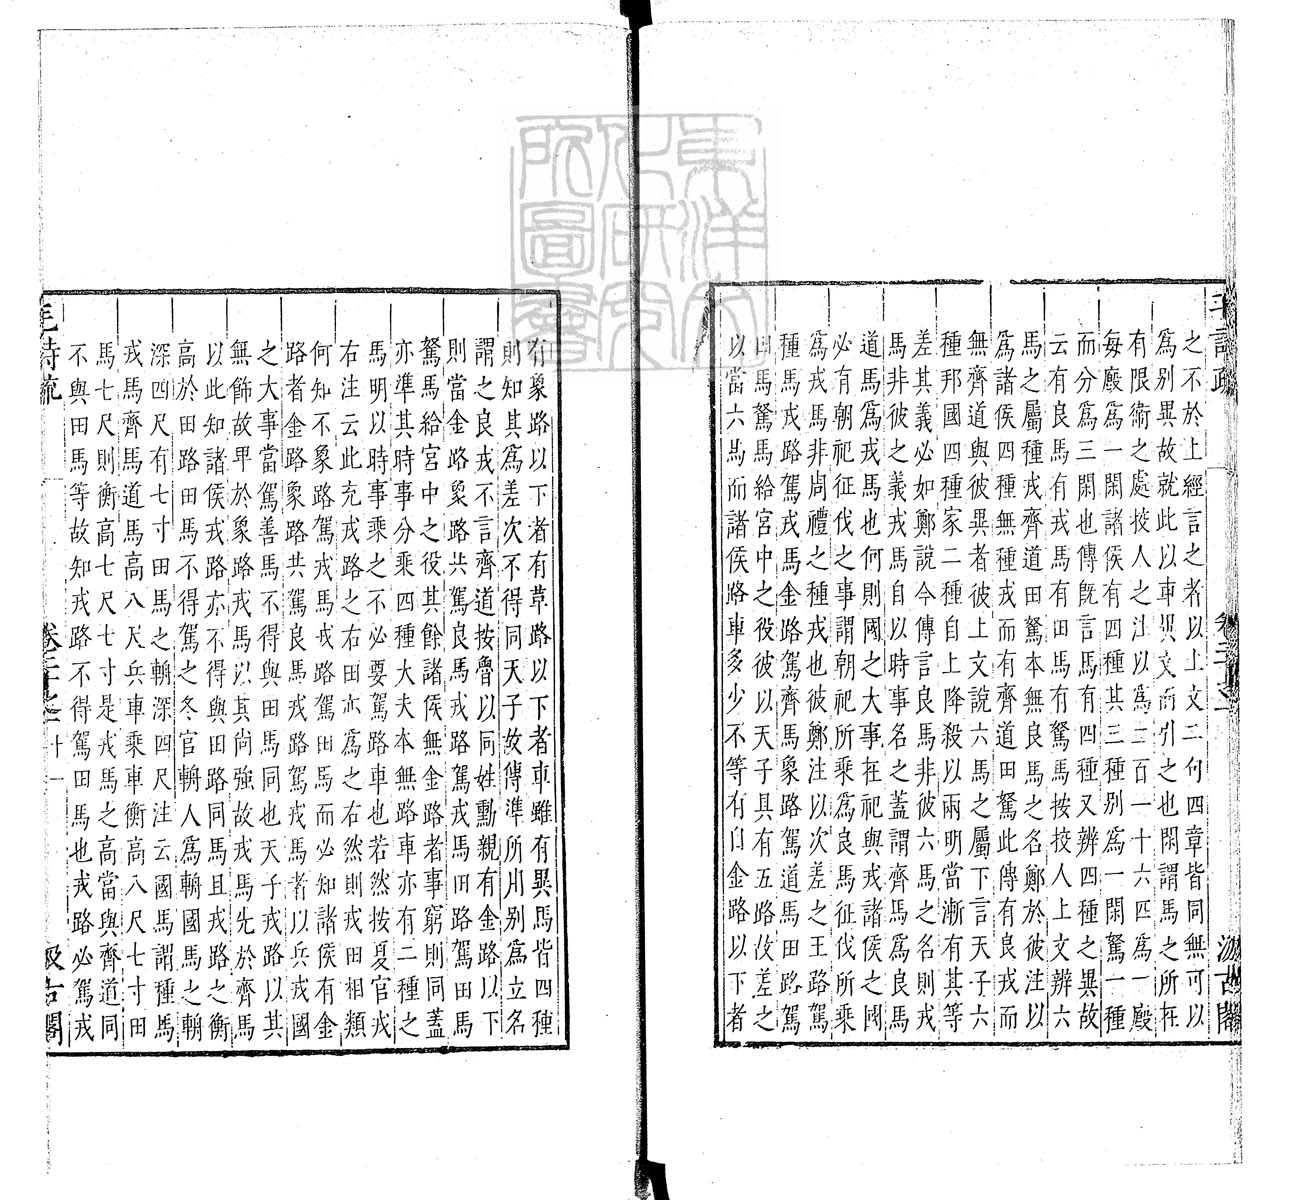 之不於上經言之者以上文二句四章皆同無可以
爲別異故就此以車異文而引之也閑謂馬之所在
有限衛之處挍人之注以爲二百一十六匹爲一廄
每廄爲一閑諸侯有四種其三種別爲一閑駑一種
而分爲三閑也傳旣言馬有四種又辨四種之異故
云有良馬有戎馬有田馬有駑馬按挍人上文辨六
馬之屬種戎齊道田駑本無良馬之名鄭於彼注以
爲諸侯四種無種戎而有齊道田駑此傳有良戎而
無齊道與彼異者彼上文說六馬之屬下言天子六
種邦國四種家二種自上降殺以兩明當漸有其等
差其義必如鄭說今傳言良馬非彼六馬之名則戎
馬非彼之義戎馬自以時事名之蓋謂齊馬爲良馬
道馬爲戎馬也何則國之大事在祀與戎諸侯之國
必有朝祀征伐之事謂朝祀所乘爲良馬征伐所乘
爲戎馬非周禮之種戎也彼鄭注以次差之王路駕
種馬戎路駕戎馬金路駕齊馬象路駕道馬田路駕
田馬駑馬給宮中之役彼以天子具有五路故差之
以當六馬而諸侯路車多少不等有自金路以下者
毛詩疏 卷二十之一 汲古閣
有象路以下者有革路以下者車雖有異馬皆四種
則知其爲差次不得同天子故傳準所用別爲立名
謂之良戎不言齊道按魯以同姓勳親有金路以下
則當金路象路共駕良馬戎路駕戎馬田路駕田馬
駑馬給宮中之役其餘諸侯無金路者事窮則同蓋
亦準其時事分乘四種大夫本無路車亦有二種之
馬明以時事乘之不必要駕路車也若然按夏官戎
右注云此充戎路之右田亦爲之右然則戎田相類
何知不象路駕戎馬戎路駕田馬而必知諸侯有金
路者金路象路共駕良馬戎路駕戎馬者以兵戎國
之大事當駕善馬不得與田馬同也天子戎路以其
無飾故卑於象路戎馬以其尚強故戎馬先於齊馬
以此知諸侯戎路亦不得與田路同馬且戎路之衡
高於田路田馬不得駕之冬官輈人爲輈國馬之輈
深四尺有七寸田馬之輈深四尺注云國馬謂種馬
戎馬齊馬道馬高八尺兵車乘車衡高八尺七寸田
馬七尺則衡高七尺七寸是戎馬之高當與齊道同
不與田馬等故知戎路不得駕田馬也戎路必駕戎
毛詩疏 卷二十之一 十一 汲古閣